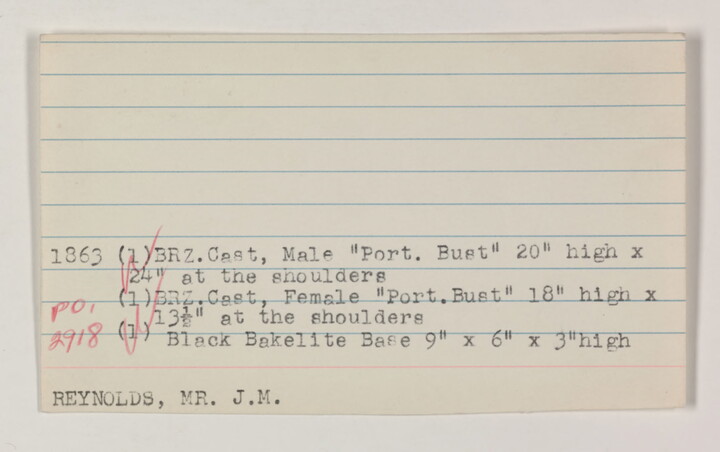 1863 (1)BRZ.Cast, Male "Port. Bust" 20" high x
24" at the shoulders
(1)BRZ.Cast, Female "Port.Bust" 18" high x
13½" at the shoulders
PO.
2918
(1) Black Bakelite Base 9" x 6" x 3"high
REYNOLDS, MR. J.M.